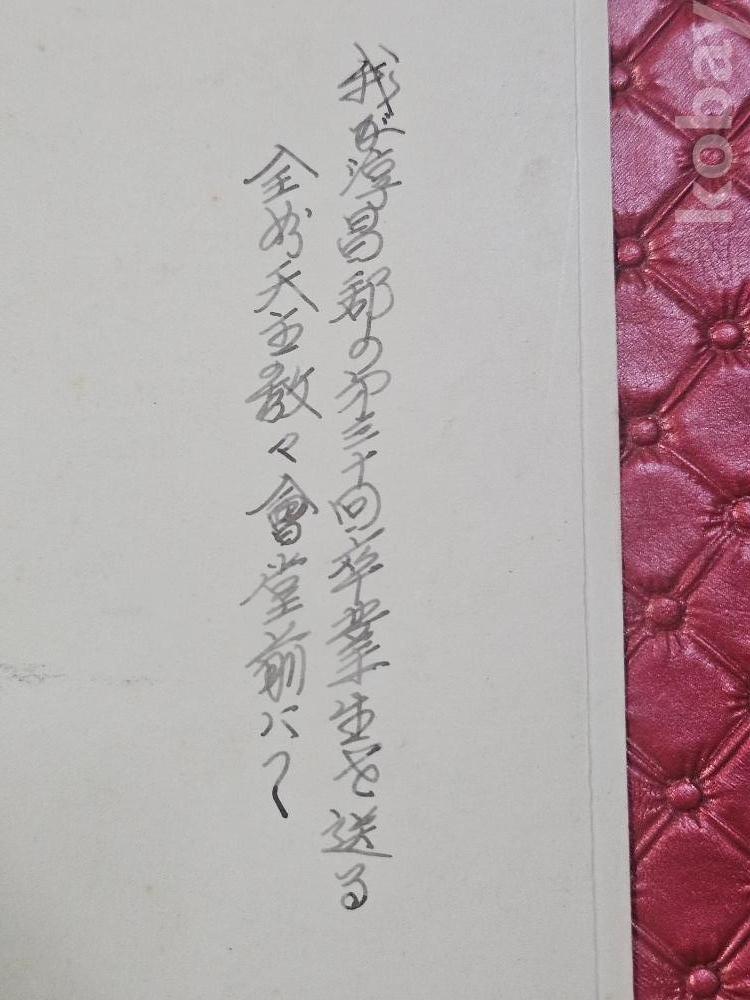 我が淳昌郡の第三十回卒業生を送る
全州天主教々會堂前にて
kobay